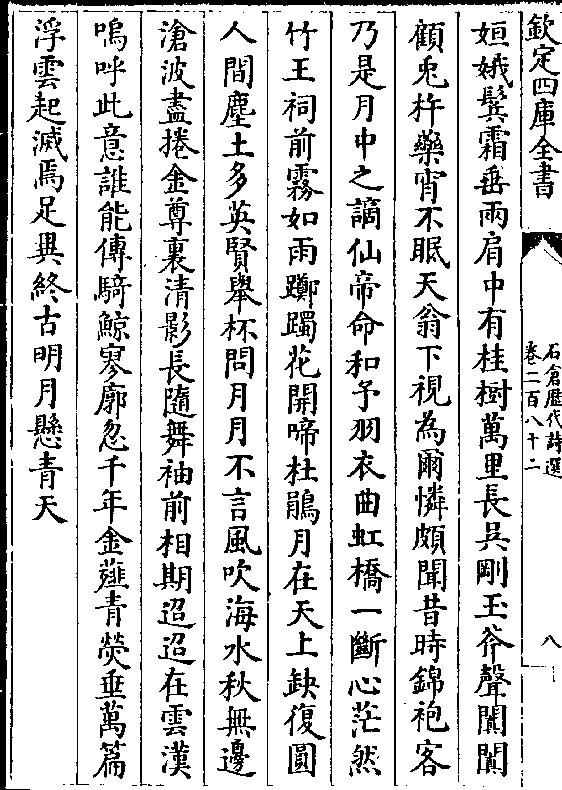 欽定四庫全書
石倉歷代詩選
卷二百八十二
八
姮娥鬂霜垂兩肩中有桂樹萬里長吳剛玉斧聲闐闐
顧兎杵藥宵不眠天翁下視為爾憐頗聞昔時錦袍客
乃是月中之謫仙帝命和予羽衣曲虹橋一斷心茫然
竹王祠前霧如雨躑躅花開啼杜鵑月在天上缺復圓
人間塵土多英賢舉杯問月月不言風吹海水秋無邊
滄波盡捲金尊裏清影長隨舞袖前相期迢迢在雲漢
嗚呼此意誰能傳騎鯨寥廓忽千年金薤青熒垂萬篇
浮雲起滅焉足異終古明月懸青天